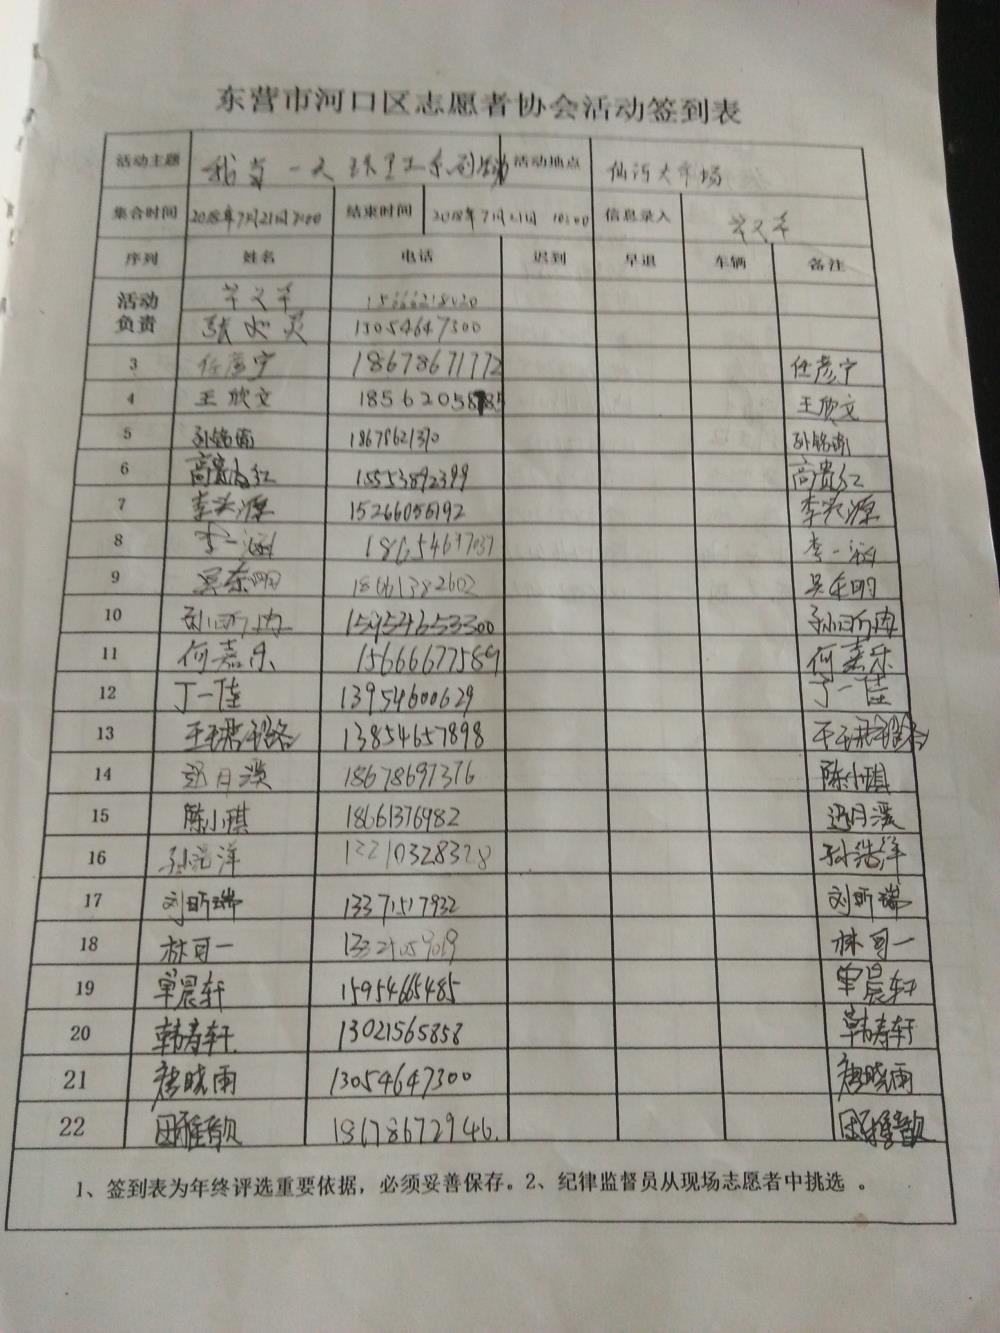 东营市河口区志愿者协会活动签到表
活动主题 我当一天环卫工系列活动 活动地点 仙河大市场
集合时间 2018年7月21日7:00 结束时间 2018年7月21日 10:00 信息录入
序列 姓名 电话 迟到 早退 车辆 备注
活动负责
13054647300
3 任彦宁 18678671772 任彦宁
4 王欣文 王欣文
5 孙铭 18678621310 孙铭
6 高贵红 15553892399 高贵红
7 李 源 15266056192 李 源
8 李一涵 李一涵
9 吴东明 18661382602 吴东明
10 15954653300
11 何嘉乐 15666677589 何嘉乐
12 丁一佳 13954600629 丁一佳
13 13854657898
14 迟月溪 18678697376 陈小琪
15 陈小琪 18661376982 迟月溪
16 孙浩洋 13210328328 孙浩洋
17 刘昕瑞 13371517932 刘昕瑞
18 林可一 林可一
19 单晨轩 15954665485 单晨轩
20 韩寿轩 13021565858 韩寿轩
21 唐晓雨 13054647300 唐晓雨
22 18678672946.
1、签到表为年终评选重要依据，必须妥善保存。2、纪律监督员从现场志愿者中挑选 。